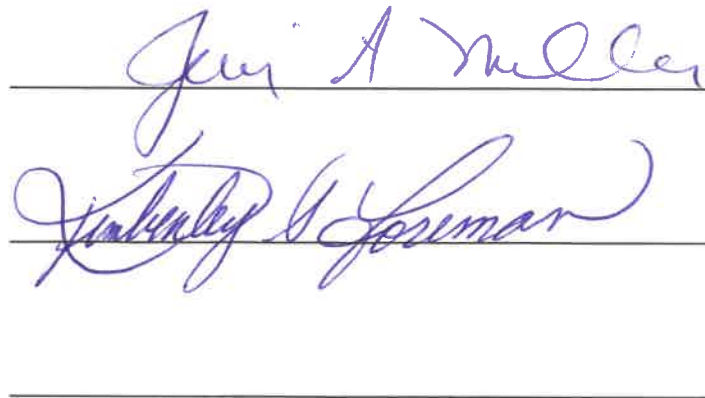 A Miller
Kimberley G Foreman